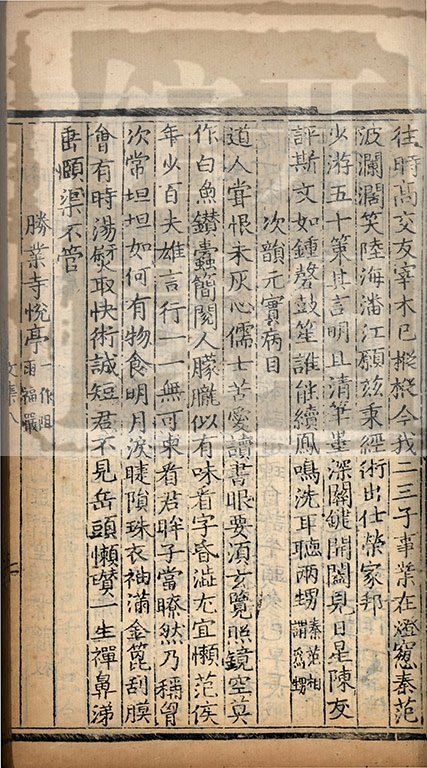 往時高交友宰木已樅樅今我二三子事業在燈窓秦范
波瀾濶笑陸海潘江願茲秉經術出仕榮家邦
少游五十策其言明且清筆墨深關鍵開闔見日星陳友
評斯文如鍾磬鼓笙誰能續鳳鳴洗耳聽兩甥秦范相謂爲甥
次韻元實病目
道人嘗恨未灰心儒士苦愛讀書眼要須玄覽照鏡空莫
作白魚鑽蠹簡閱人朦朧似有味看字昏澁尤宜懶范侯
年少百夫雄言行一一無可柬看君眸子當瞭然乃稱胷
次常坦坦如何有物食明月淚睫隕珠衣袖滿金篦刮膜
會有時湯熨取快術誠短君不見岳頭懶瓚一生禪鼻涕
垂頤渠不管
勝業寺悅亭一作咀雨福嚴
文集八